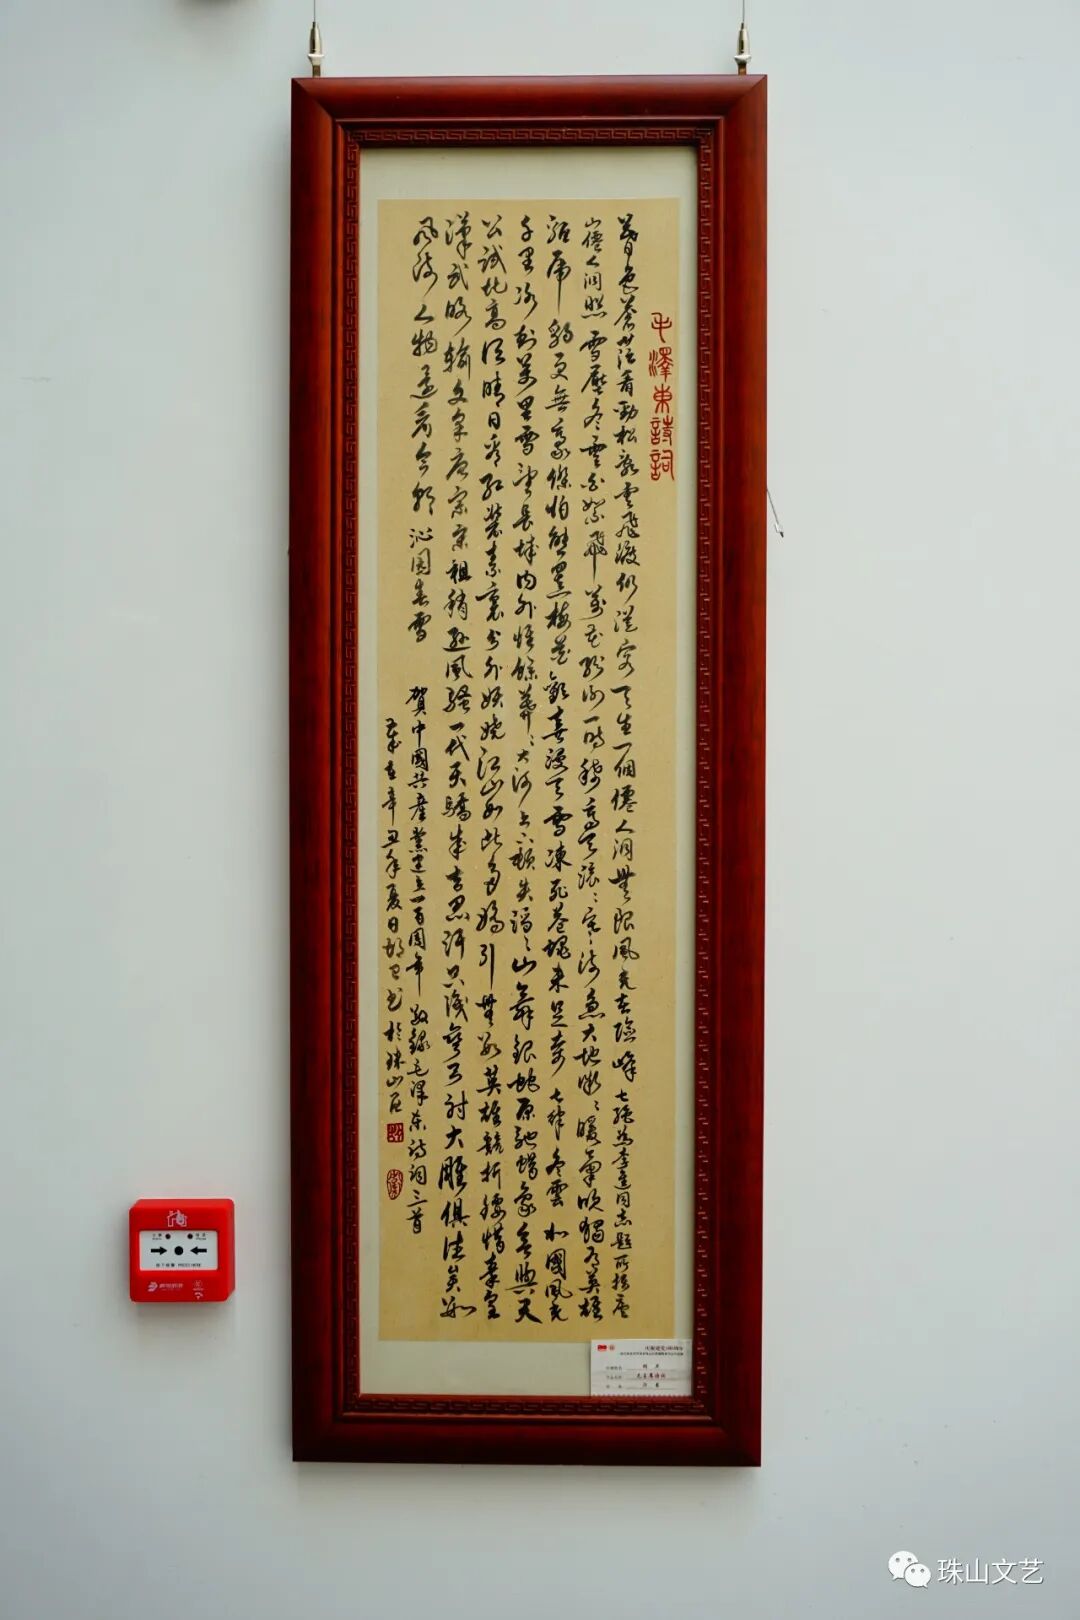 毛澤東詩詞
暮色蒼茫看勁松亂雲飛渡仍從容天生一個僊人洞無限風光在險峰 七絕为李進同志題所攝廬
山僊人洞照 雪壓冬雲白絮飛萬花紛謝一時稀高天滾滾寒流急大地微微暖氣吹獨有英雄
驅虎豹更無豪傑怕熊羆梅花歡喜漫天雪凍死蒼蠅未足奇 七律冬雲 北國風光
千里冰封萬里雪望長城內外惟餘莽莽大河上下頓失滔滔山舞銀蛇原馳蠟象欲與天
公試比高須晴日看红裝素裹分外妖嬈江山如此多嬌引無數英雄競折腰惜秦皇
漢武略輸文采唐宗宋祖稍遜風騷一代天驕成吉思汗只識彎弓射大雕俱往矣數
風流人物還看今朝 沁園春雪 賀中國共產黨建立一百周年 敬錄毛澤东詩詞三首
歲在辛丑年夏日 书於珠山
毛主席诗词
PRESS HERE
珠山文艺